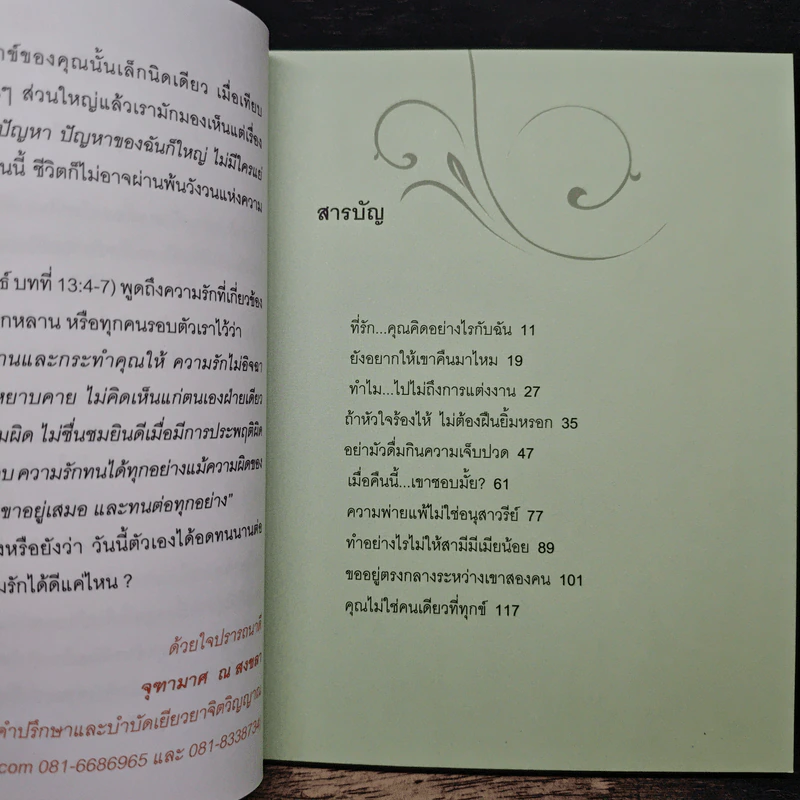 ของคุณนั้นเล็กนิดเดียว เมื่อเทียบ
ๆ ส่วนใหญ่แล้วเรามักมองเห็นแต่เรื่อง
ปัญหา ปัญหาของฉันก็ใหญ่ ไม่มีใครแย่
นนี้ ชีวิตก็ไม่อาจผ่านพ้นวังวนแห่งความ
ธ์ บทที่ 13:4-7) พูดถึงความรักที่เกี่ยวข้อง
กหลาน หรือทุกคนรอบตัวเราไว้ว่า
านและกระทำคุณให้ ความรักไม่อิจฉา
หยาบคาย ไม่คิดเห็นแก่ตนเองฝ่ายเดียว
มผิด ไม่ชื่นชมยินดีเมื่อมีการประพฤติผิด
อบ ความรักทนได้ทุกอย่างแม้ความผิดของ
ขาอยู่เสมอ และทนต่อทุกอย่าง"
งหรือยังว่า วันนี้ตัวเองได้อดทนนานต่อ
มรักได้ดีแค่ไหน ?
ด้วยใจปรารถนาดี
จุฑามาศ ณ สงขลา
คำปรึกษาและบำบัดเยียวยาจิตวิญญาณ
.com 081-6686965 และ 081-8338734
สารบัญ
ที่รัก...คุณคิดอย่างไรกับฉัน 11
ยังอยากให้เขาคืนมาไหม 19
ทำไม...ไปไม่ถึงการแต่งงาน 27
ถ้าหัวใจร้องไห้ ไม่ต้องฝืนยิ้มหรอก 35
อย่ามัวดื่มกินความเจ็บปวด 47
เมื่อคืนนี้...เขาชอบมั้ย? 61
ความพ่ายแพ้ไม่ใช่อนุสาวรีย์ 77
ทำอย่างไรไม่ให้สามีมีเมียน้อย 89
ขออยู่ตรงกลางระหว่างเขาสองคน 101
คุณไม่ใช่คนเดียวที่ทุกข์ 117